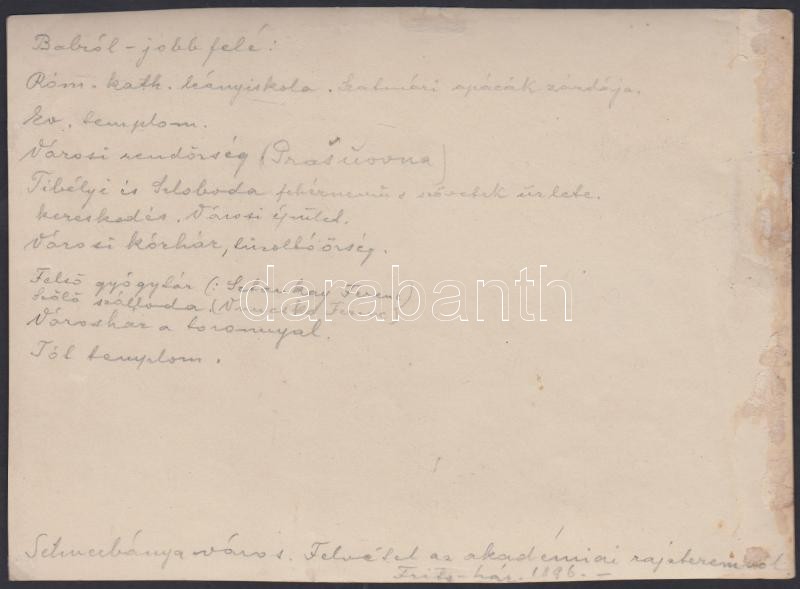 Balról - jobb felé:
Róm. kath. leányiskola. Szatmári apácák zárdája.
Ev. templom.
Városi rendőrség (Prašivovna)
Tibélyi és Szloboda fehérnemű s szövetek üzlete.
kereskedés. Városi épület.
Városi kórház, tűzoltóőrség.
Felső gyógytár (: Sztankay Ferenc)
Szőlő szálloda (Ferenc)
Városház a toronnyal.
Tót templom.
darabanth
Selmecbánya város. Felvétel az akadémiai rajzteremből
Fritz-ház. 1896. -